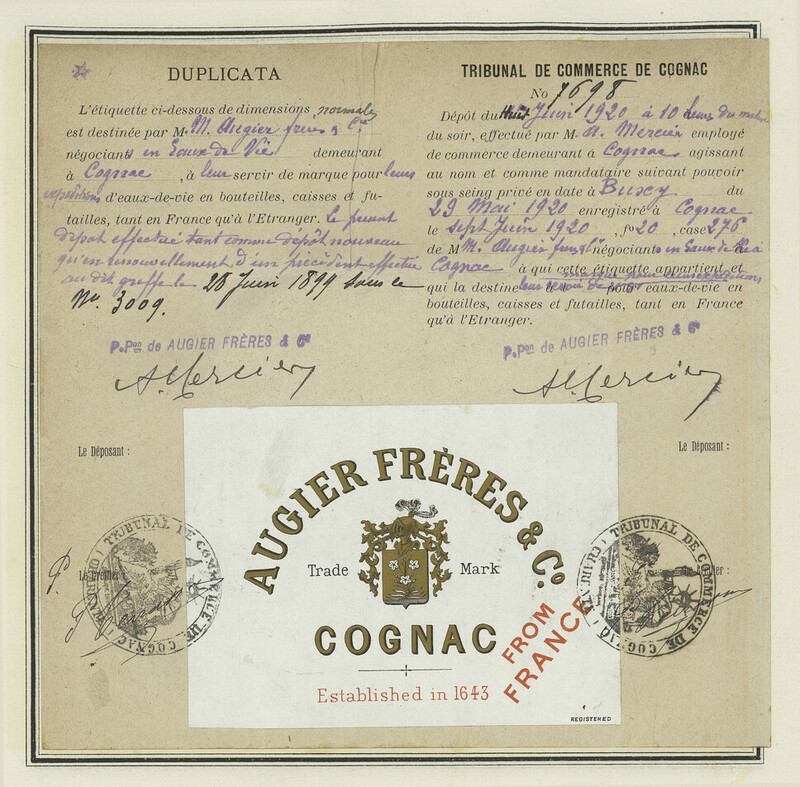 DUPLICATA
L'étiquette ci-dessous de dimensions normales
est destinée par M. M. Augier frères & Cie
négociants en Eaux de Vie demeurant
à Cognac, à leur servir de marque pour leurs
expéditions d'eaux-de-vie en bouteilles, caisses et fu-
tailles, tant en France qu'à l'Etranger. Le présent
dépôt effectué tant comme dépôt nouveau
qu'en renouvellement d'un précédent effectué
au dit greffe le 28 Juin 1899 sous le
No. 3009.
P. Pon de AUGIER FRÈRES & Cie
A. Mercier
Le Déposant :
TRIBUNAL DE COMMERCE DE COGNAC
No 7698
Dépôt du Huit Juin 1920 à 10 heures du matin
du soir, effectué par M. A. Mercier employé
de commerce demeurant à Cognac agissant
au nom et comme mandataire suivant pouvoir
sous seing privé en date à du
29 Mai 1920 enregistré à Cognac
le sept Juin 1920, fo 20, case 276
de M M. Augier frères & Cie négociants en Eaux de Vie à
Cognac à qui cette étiquette appartient et
qui la destine eaux-de-vie en
bouteilles, caisses et futailles, tant en France
qu'à l'Etranger.
P. Pon de AUGIER FRÈRES & Cie
A. Mercier
Le Déposant :
AUGIER FRÈRES & Co.
Trade Mark
COGNAC
Established in 1643
FROM
FRANCE
REGISTERED
TRIBUNAL DE COMMERCE DE COGNAC (CHARENTE)
P.
Le Greffier :
TRIBUNAL DE COMMERCE DE COGNAC (CHARENTE)